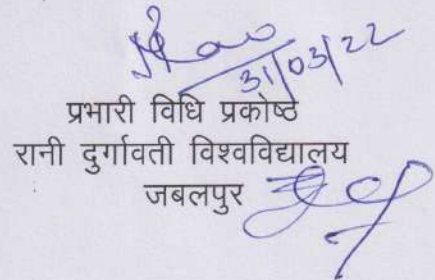 31/03/22
प्रभारी विधि प्रकोष्ठ
रानी दुर्गावती विश्वविद्यालय
जबलपुर